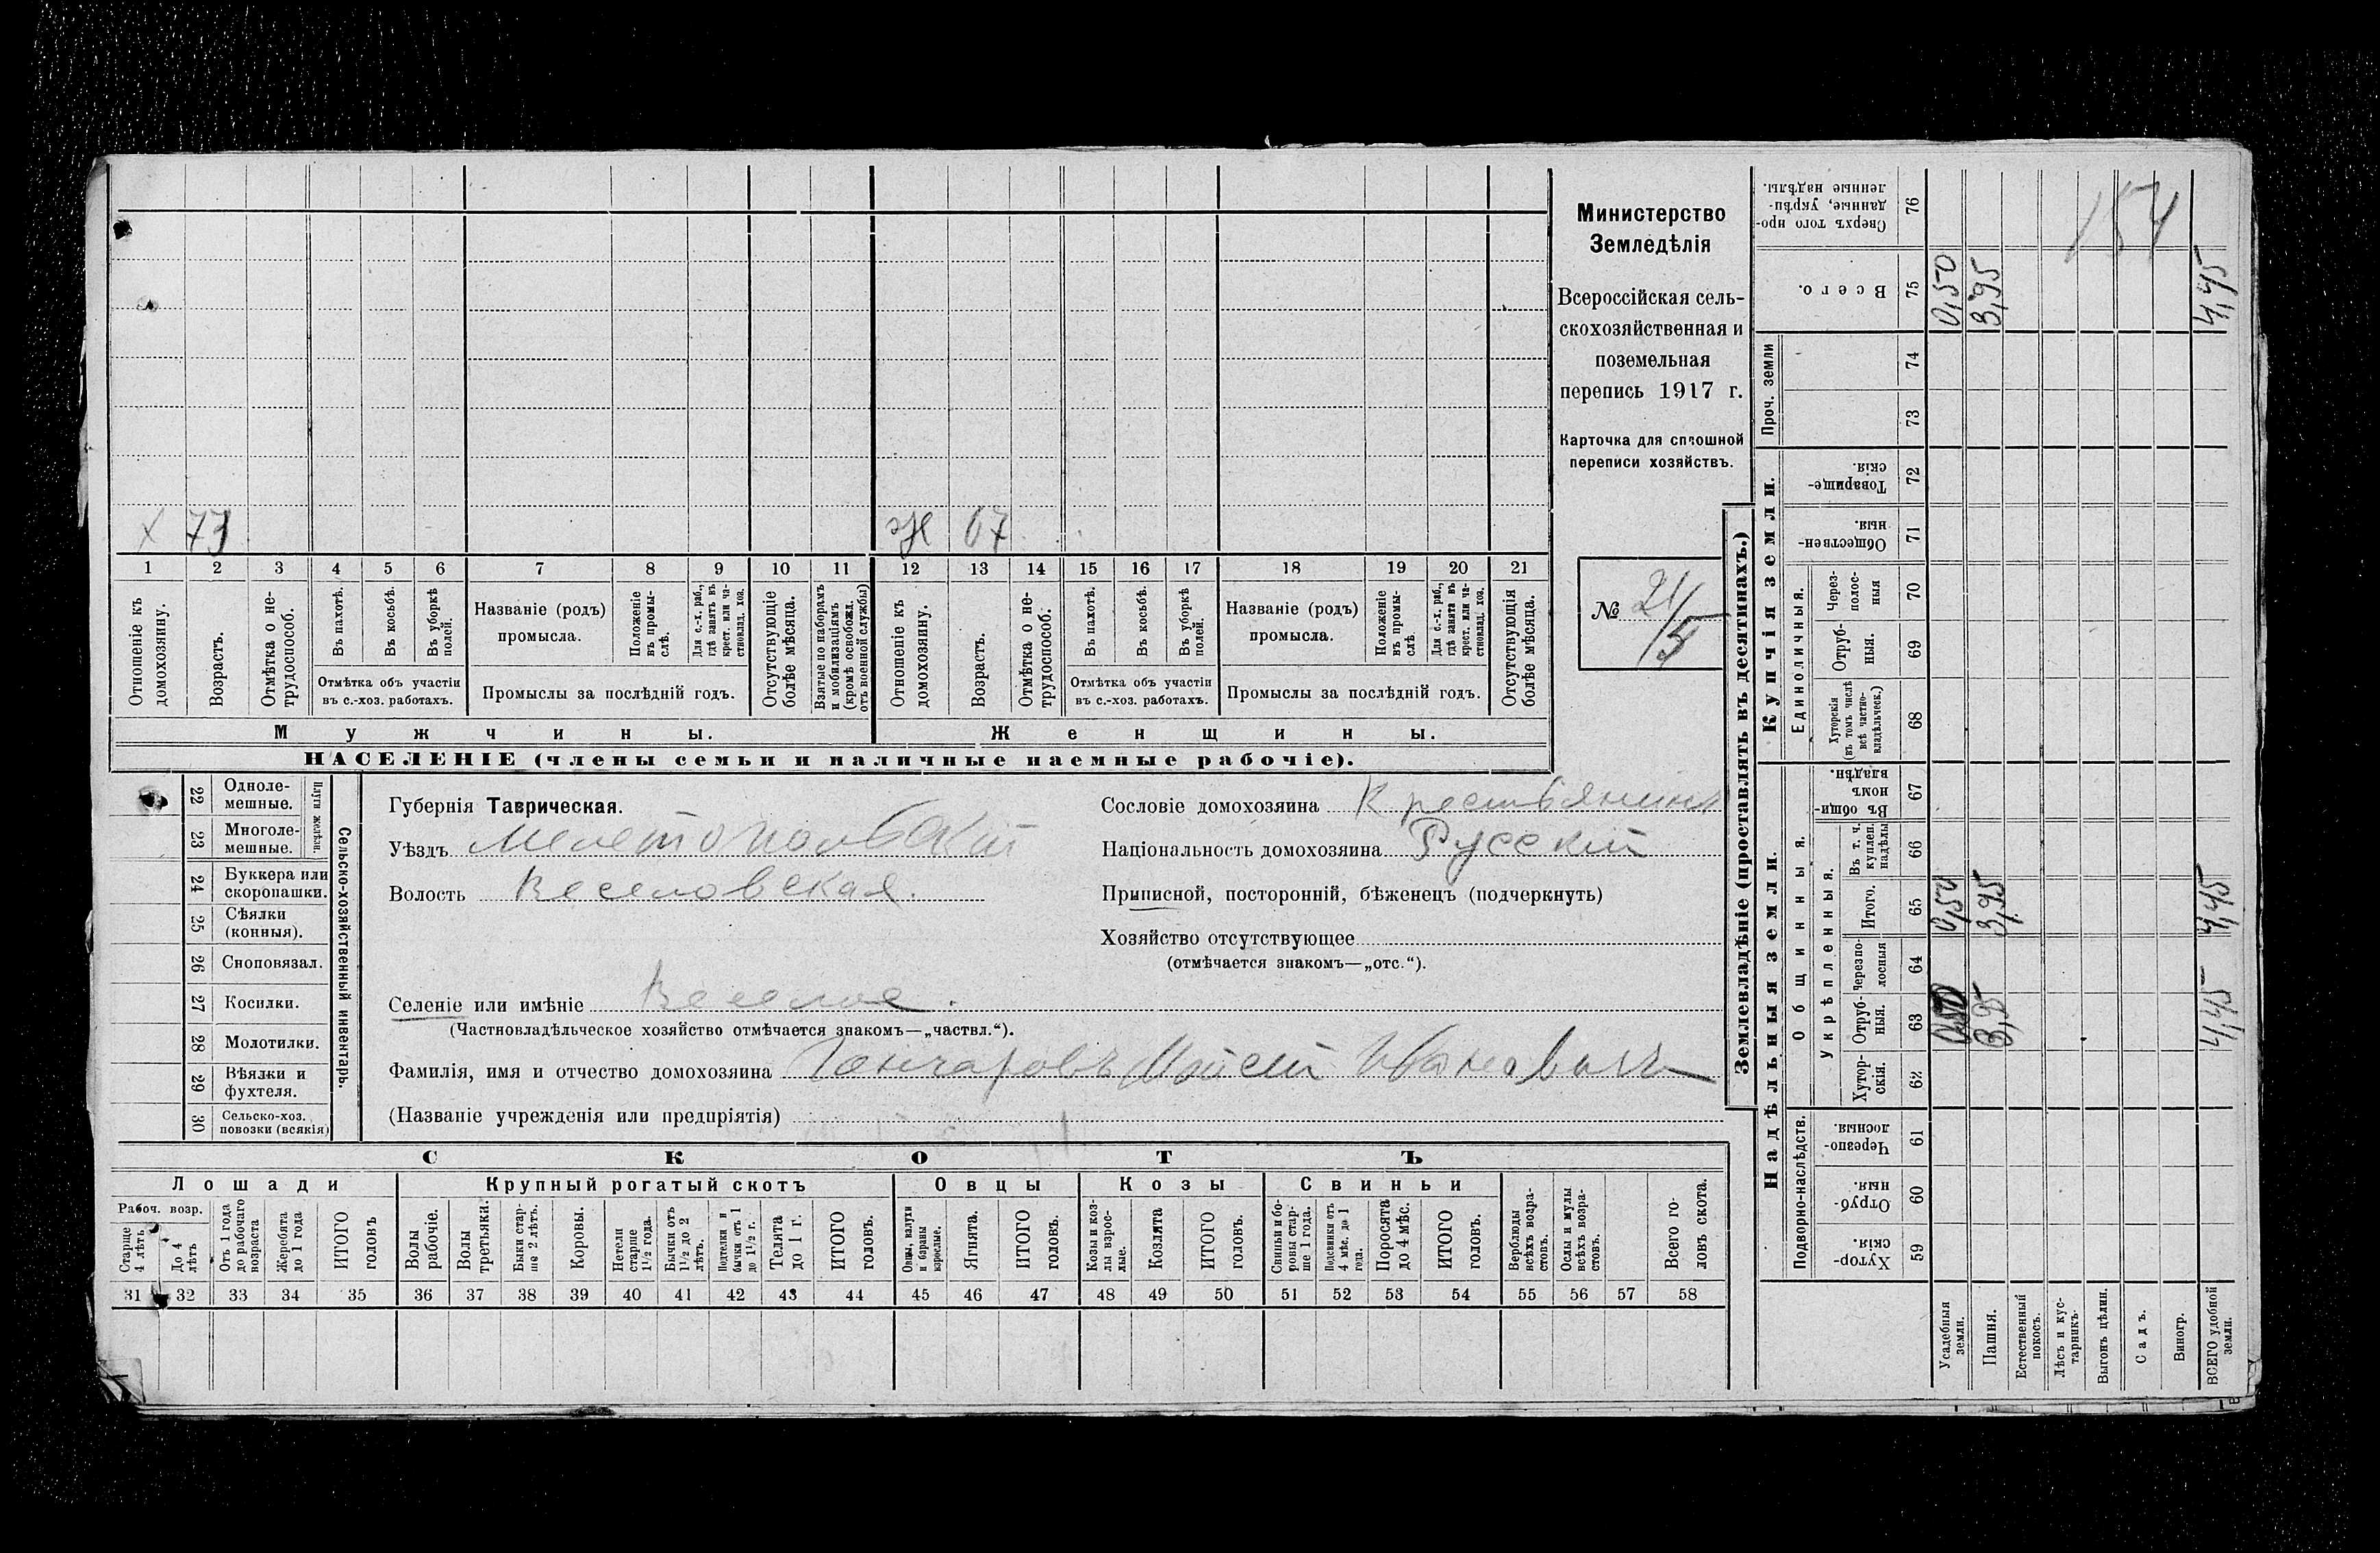 Министерство
Земледѣлія
Всероссійская сель-
скохозяйственная и
поземельная
перепись 1917 г.
Карточка для сплошной
переписи хозяйствъ.
№ 21/5
х 73
Ж 67
1 2 3 4 5 6 7 8 9 10 11 12 13 14 15 16 17 18 19 20 21
Отношеніе къ домохозяину.
Возрастъ.
Отмѣтка о не-трудоспособ.
Въ пахотѣ.
Въ косьбѣ.
Въ уборкѣ полей.
Отмѣтка объ участіи въ с.-хоз. работахъ.
Названіе (родъ) промысла.
Положеніе въ промы-слѣ.
Для с.-х. раб., гдѣ занятъ въ крест. или ча-стновлад. хоз.
Промыслы за послѣдній годъ.
Отсутствующіе болѣе мѣсяца.
Взятые по наборамъ и мобилизаціямъ (кромѣ освобожд. отъ военной службы)
Отношеніе къ домохозяину.
Возрастъ.
Отмѣтка о не-трудоспособ.
Въ пахотѣ.
Въ косьбѣ.
Въ уборкѣ полей.
Отмѣтка объ участіи въ с.-хоз. работахъ.
Названіе (родъ) промысла.
Положеніе въ промы-слѣ
Для с.-х. раб., гдѣ занята въ крест. или ча-стновлад. хоз.
Промыслы за послѣдній годъ.
Отсутствующія болѣе мѣсяца.
Мужчины.
Женщины.
НАСЕЛЕНІЕ (члены семьи и наличные наемные рабочіе).
22 Одноле-мешные.
23 Многоле-мешные.
Плуги желѣзн.
24 Буккера или скоропашки.
25 Сѣялки (конныя).
26 Сноповязал.
27 Косилки.
28 Молотилки.
29 Вѣялки и фухтеля.
30 Сельско-хоз. повозки (всякія)
Сельско-хозяйственный инвентарь.
Губернія Таврическая.
Уѣздъ Мелетопольскій
Волость Веселовская.
Селеніе или имѣніе Веселое.
(Частновладѣльческое хозяйство отмѣчается знакомъ—„частвл.“).
Фамилія, имя и отчество домохозяина Гончаровъ Моисей Ивановичъ
(Названіе учрежденія или предпріятія)
Сословіе домохозяина Крестьянинъ
Національность домохозяина Русскій
Приписной, посторонній, бѣженецъ (подчеркнуть)
Хозяйство отсутствующее
(отмѣчается знакомъ—„отс.“).
СКОТЪ
Лошади
Крупный рогатый скотъ
Овцы
Козы
Свиньи
Рабоч. возр.
Старше 4 лѣтъ
До 4 лѣтъ
Отъ 1 года до рабочаго возраста
Жеребята до 1 года
ИТОГО головъ
Волы рабочіе.
Волы третьяки.
Быки стар-ше 2 лѣтъ.
Коровы.
Нетели старше 1 1/2 года.
Бычки отъ 1 1/2 до 2 лѣтъ.
Подтелки и бычки отъ 1 до 1 1/2 г.
Телята до 1 г.
ИТОГО головъ.
Овцы, валухи и бараны взрослые.
Ягнята.
ИТОГО головъ.
Козы и коз-лы взрос-лые.
Козлята
ИТОГО головъ.
Свиньи и бо-ровы стар-ше 1 года.
Подсвинки отъ 4 мѣс. до 1 года.
Поросята до 4 мѣс.
ИТОГО головъ.
Верблюды всѣхъ возра-стовъ.
Ослы и мулы всѣхъ возра-стовъ.
Всего го-ловъ скота.
31 32 33 34 35 36 37 38 39 40 41 42 43 44 45 46 47 48 49 50 51 52 53 54 55 56 57 58
Землевладѣніе (проставлять въ десятинахъ.)
Надѣльныя земли.
Купчія земли.
Проч. земли
Подворно-наслѣдств.
Общинныя.
Укрѣпленныя.
Единоличныя.
59 Хутор-скія.
60 Отруб-ныя.
61 Черезпо-лосныя.
62 Хутор-скія.
63 Отруб-ныя.
64 Черезпо-лосныя
65 Итого.
66 Въ т. ч. куплен. надѣлы
67 Въ общин-номъ владѣн.
68 Хуторскія (въ томъ числѣ всѣ частно-владѣльческ.)
69 Отруб-ныя.
70 Через-полос-ныя
71 Обществен-ныя.
72 Товарище-скія.
73
74
75 Всего.
76 Сверхъ того про-данные, укрѣп-ленные надѣлы.
Усадебныя земли. 0,50 0,50
Пашня. 3,95 3,95 3,95
Естественный покосъ.
Лѣсъ и кус-тарникъ.
Выгонъ цѣлин.
Садъ.
Виногр.
ВСЕГО удобной земли. 4,45 4,45 4,45
154